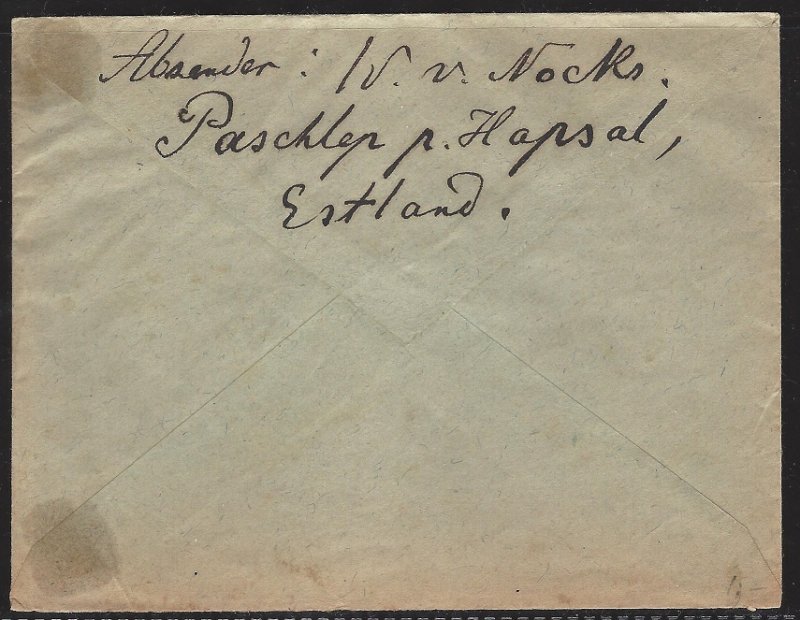 Absender: W. v. Nocks.
Paschlep p. Hapsal,
Estland.